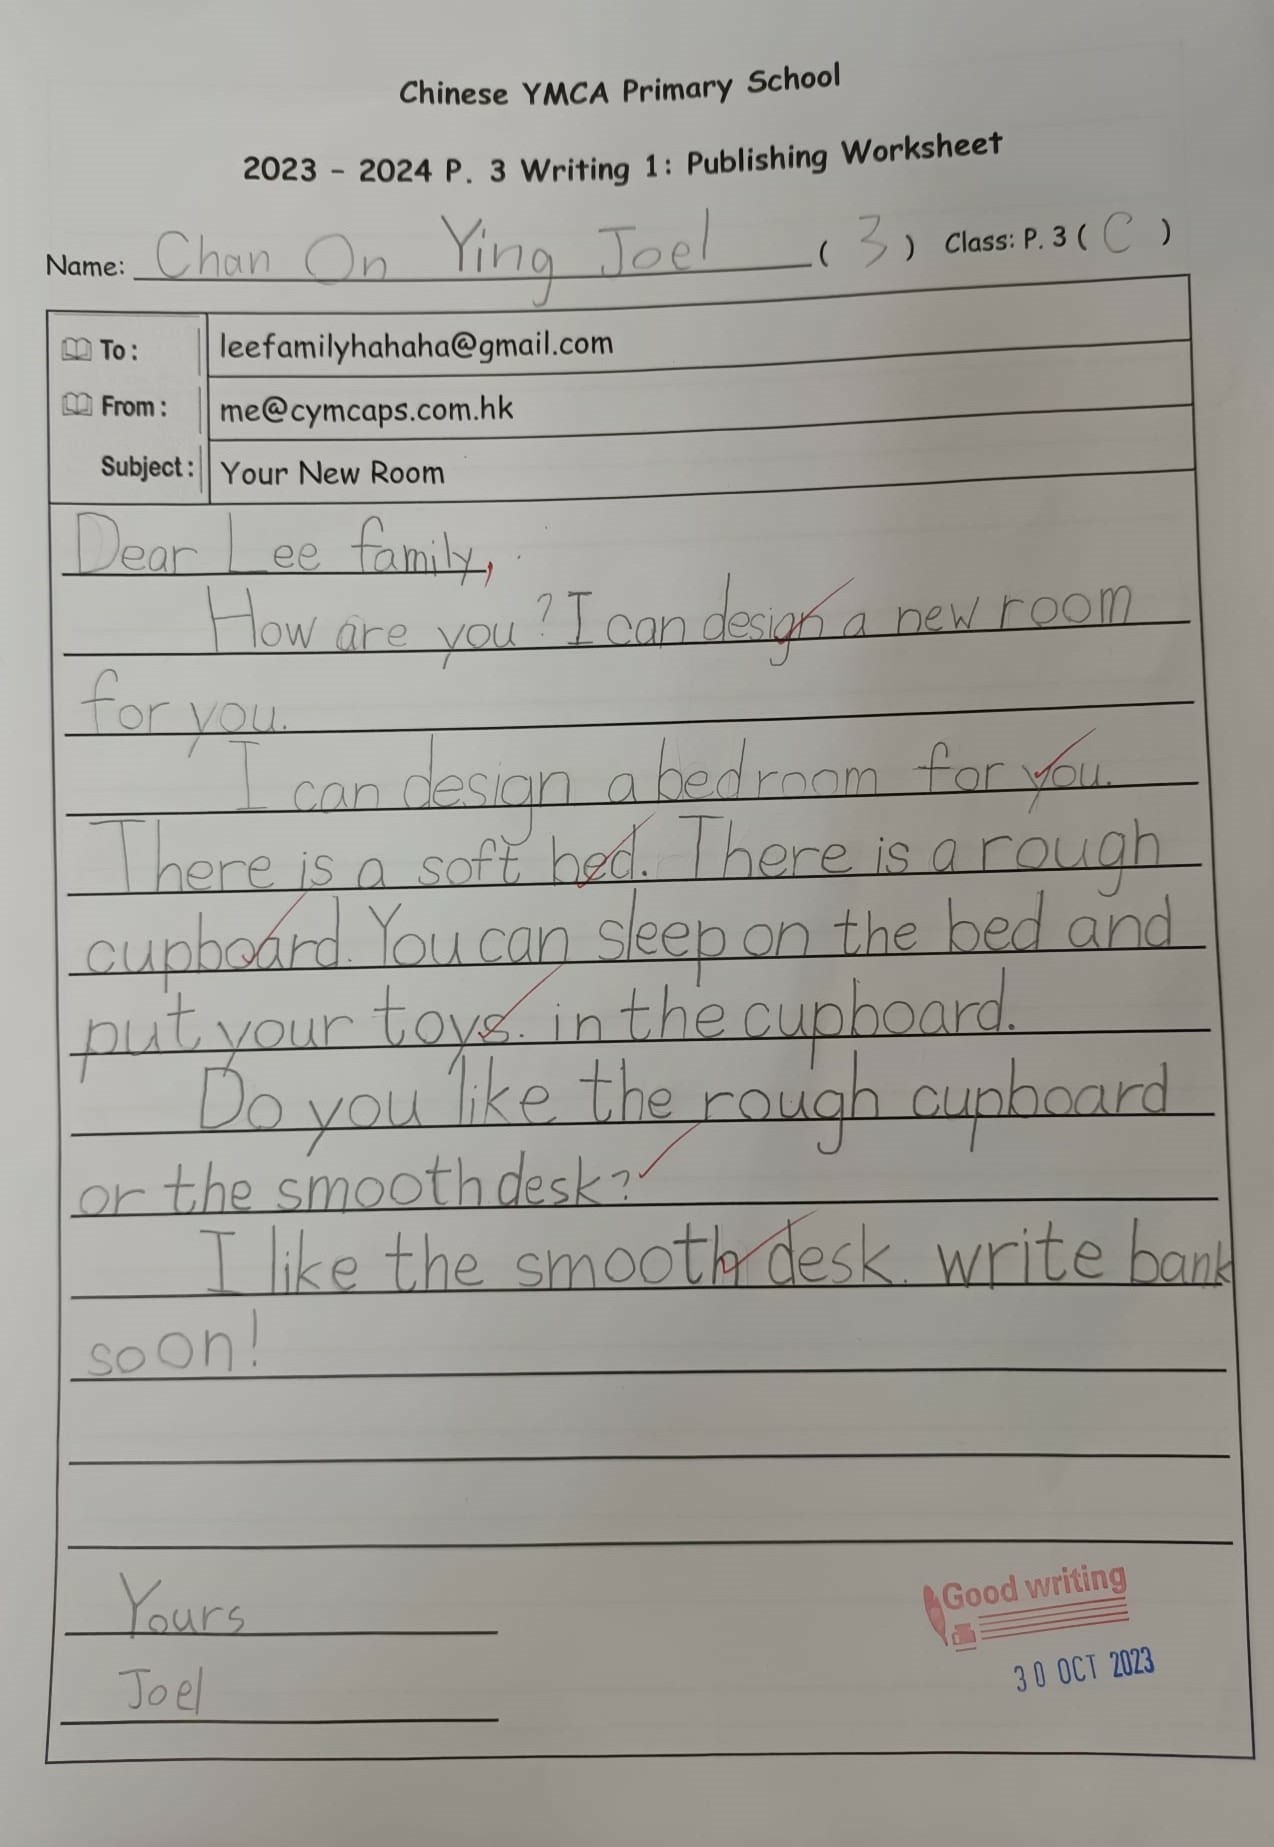 Chinese YMCA Primary School
2023 - 2024 P. 3 Writing 1: Publishing Worksheet
Name: Chan On Ying Joel ( 3 ) Class: P. 3 ( C )
To: leefamilyhahaha@gmail.com
From: me@cymcaps.com.hk
Subject: Your New Room
Dear Lee family,
How are you? I can design a new room
for you.
I can design a bedroom for you.
There is a soft bed. There is a rough
cupboard. You can sleep on the bed and
put your toys. in the cupboard.
Do you like the rough cupboard
or the smooth desk?
I like the smooth desk. write bank
soon!
Yours
Joel
Good writing
30 OCT 2023